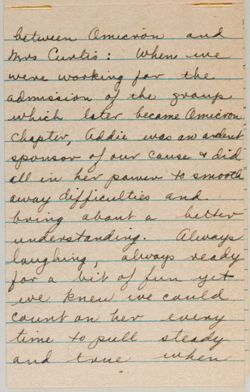 between Omicron and
Mrs Curtis: When we
were working for the
admission of the group
which later became Omicron
Chapter, Addie was an ardent
sponsor of our cause & did
all in her power to smooth
away difficulties and
bring about a better
understanding. Always
laughing, always ready
for a bit of fun yet
we knew we could
count on her every
time to pull steady
and true when